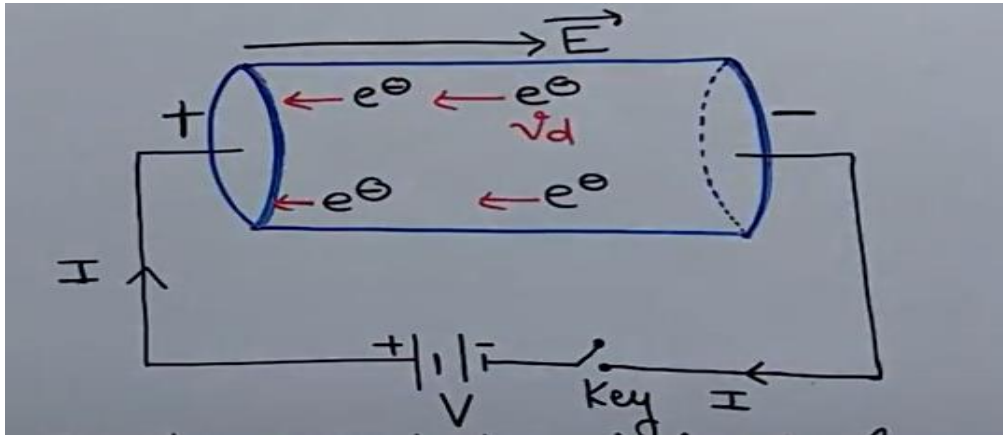 E
+ e⊖ e⊖ −
vd
e⊖ e⊖
I
+ −
V Key I